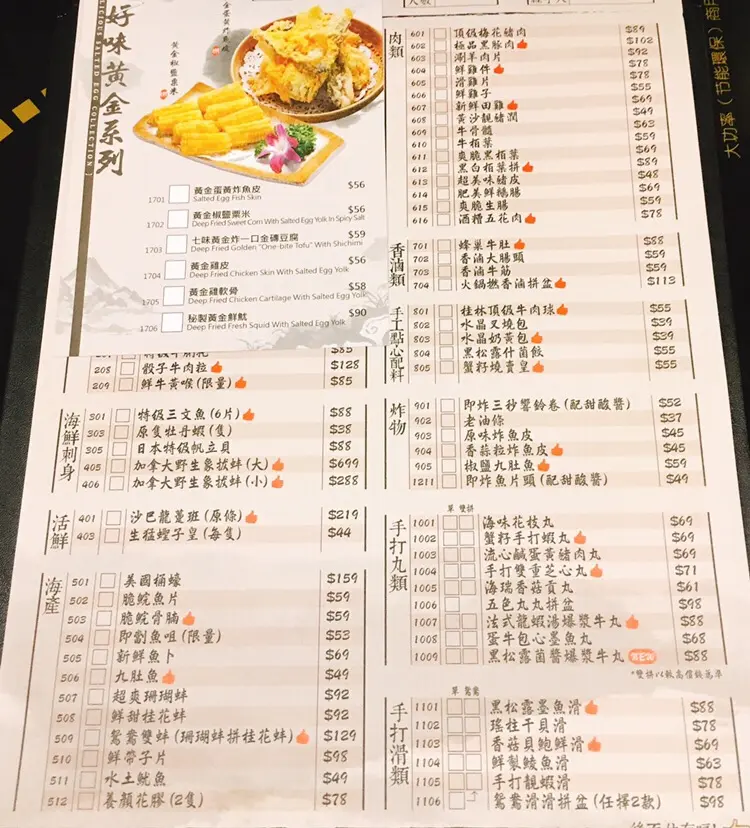 好味黃金系列
DELICIOUS SALTED EGG COLLECTION
黃金椒鹽粟米
1701 黃金蛋黃炸魚皮 $56
Salted Egg Fish Skin
1702 黃金椒鹽粟米 $56
Deep Fried Sweet Corn With Salted Egg Yolk In Spicy Salt
1703 七味黃金炸一口金磚豆腐 $59
Deep Fried Golden "One-bite Tofu" With Shichimi
1704 黃金雞皮 $56
Deep Fried Chicken Skin With Salted Egg Yolk
1705 黃金雞軟骨 $58
Deep Fried Chicken Cartilage With Salted Egg Yolk
1706 秘製黃金鮮魷 $90
Deep Fried Fresh Squid With Salted Egg Yolk
$85
208 骰子牛肉粒 $128
209 鮮牛黃喉(限量) $85
海鮮刺身
301 特級三文魚(6片) $88
303 原隻牡丹蝦(隻) $38
305 日本特級帆立貝 $88
405 加拿大野生象拔蚌(大) $699
406 加拿大野生象拔蚌(小) $288
活鮮
401 沙巴龍躉班(原條) $219
403 生猛蟶子皇(每隻) $44
海產
501 美國桶蠔 $159
502 脆鯇魚片 $59
503 脆鯇骨腩 $59
504 即劏魚咀(限量) $53
505 新鮮魚卜 $69
506 九肚魚 $49
507 超爽珊瑚蚌 $92
508 鮮甜桂花蚌 $92
509 鴛鴦雙蚌(珊瑚蚌拼桂花蚌) $129
510 鮮帶子片 $98
511 水土魷魚 $49
512 養顏花膠(2隻) $78
肉類
601 頂級梅花豬肉 $89
602 極品黑豚肉 $102
603 涮羊肉片 $92
604 鮮雞件 $78
605 滑雞片 $78
606 鮮雞子 $55
607 新鮮田雞 $69
608 黃沙靚豬潤 $49
609 牛骨髓 $63
610 牛栢葉 $59
611 爽脆黑栢葉 $69
612 黑白栢葉拼 $89
613 超美味豬皮 $48
614 肥美鮮鵝腸 $69
615 爽脆生腸 $59
616 酒糟五花肉 $78
香滷類
701 蜂巢牛肚 $88
702 香滷大腸頭 $59
703 香滷牛筋 $59
704 火鍋撚香滷拼盆 $113
手工點心配料
801 桂林頂級牛肉球 $55
802 水晶叉燒包 $39
803 水晶奶黃包 $39
804 黑松露什菌餃 $55
805 蟹籽燒賣皇 $55
炸物
901 即炸三秒響鈴卷(配甜酸醬) $52
902 老油條 $37
903 原味炸魚皮 $45
904 香蒜粒炸魚皮 $45
905 椒鹽九肚魚 $59
1211 即炸魚片頭(配甜酸醬) $49
單 雙拼
手打丸類
1001 海味花枝丸 $69
1002 蟹籽手打蝦丸 $69
1003 流心鹹蛋黃豬肉丸 $69
1004 手打雙重芝心丸 $71
1005 海瑞香菇貢丸 $61
1006 五色丸丸拼盆 $98
1007 法式龍蝦湯爆漿牛丸 $88
1008 蛋牛包心墨魚丸 $68
1009 黑松露菌醬爆漿牛丸 NEW $88
*雙拼以較高價錢為準
單 鴛鴦
手打滑類
1101 黑松露墨魚滑 $88
1102 瑤柱干貝滑 $78
1103 香菇貝鮑鮮滑 $69
1104 鮮製鯪魚滑 $63
1105 手打靚蝦滑 $78
1106 鴛鴦滑滑拼盆(任擇2款) $98
大功率(节能環保)